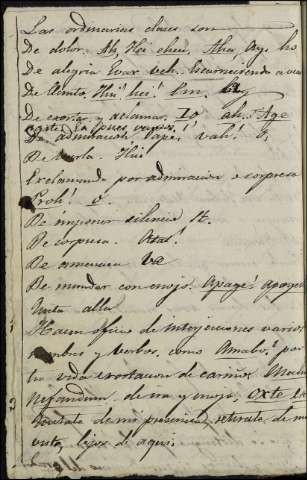 Las ordinarias clases son
De dolor. Ah, Hei eheu, Aha Ay. ho
De alegria Evax veh.
De llanto, Hui! hei!
De exortar y esclamar. Io ah. Age
De admiracion Pape! vah! o,
De burla. Hui
Exclamando por admiracion o sorpresa
Proh! o.
De imponer silencio St.
De sorpresa. Atat!
De amenaza Væ
De mandar con enojo. Apage! apagesis
Vete allá
Hacen oficio de interjecciones varios
nombres y verbos, como Amabo! por
tu vida exortacion de cariños. Malum
Nefandum, de ira y enojo,
de mi presencia, retirate de mi
vista, lejos de aqui.